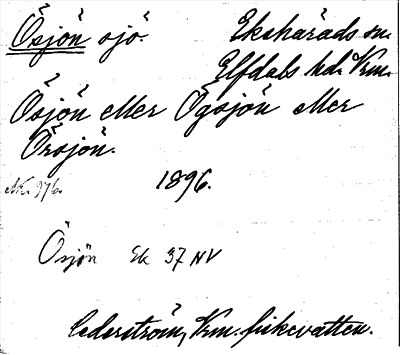 Ösjön sjö. Ekshärads sn.
Elfdals hd. Vrm.
Ösjön eller Ögsjön eller
Örsjön.
1896.
Ösjön Ek 37 NV
Cederström, Vrm. fiskevatten.